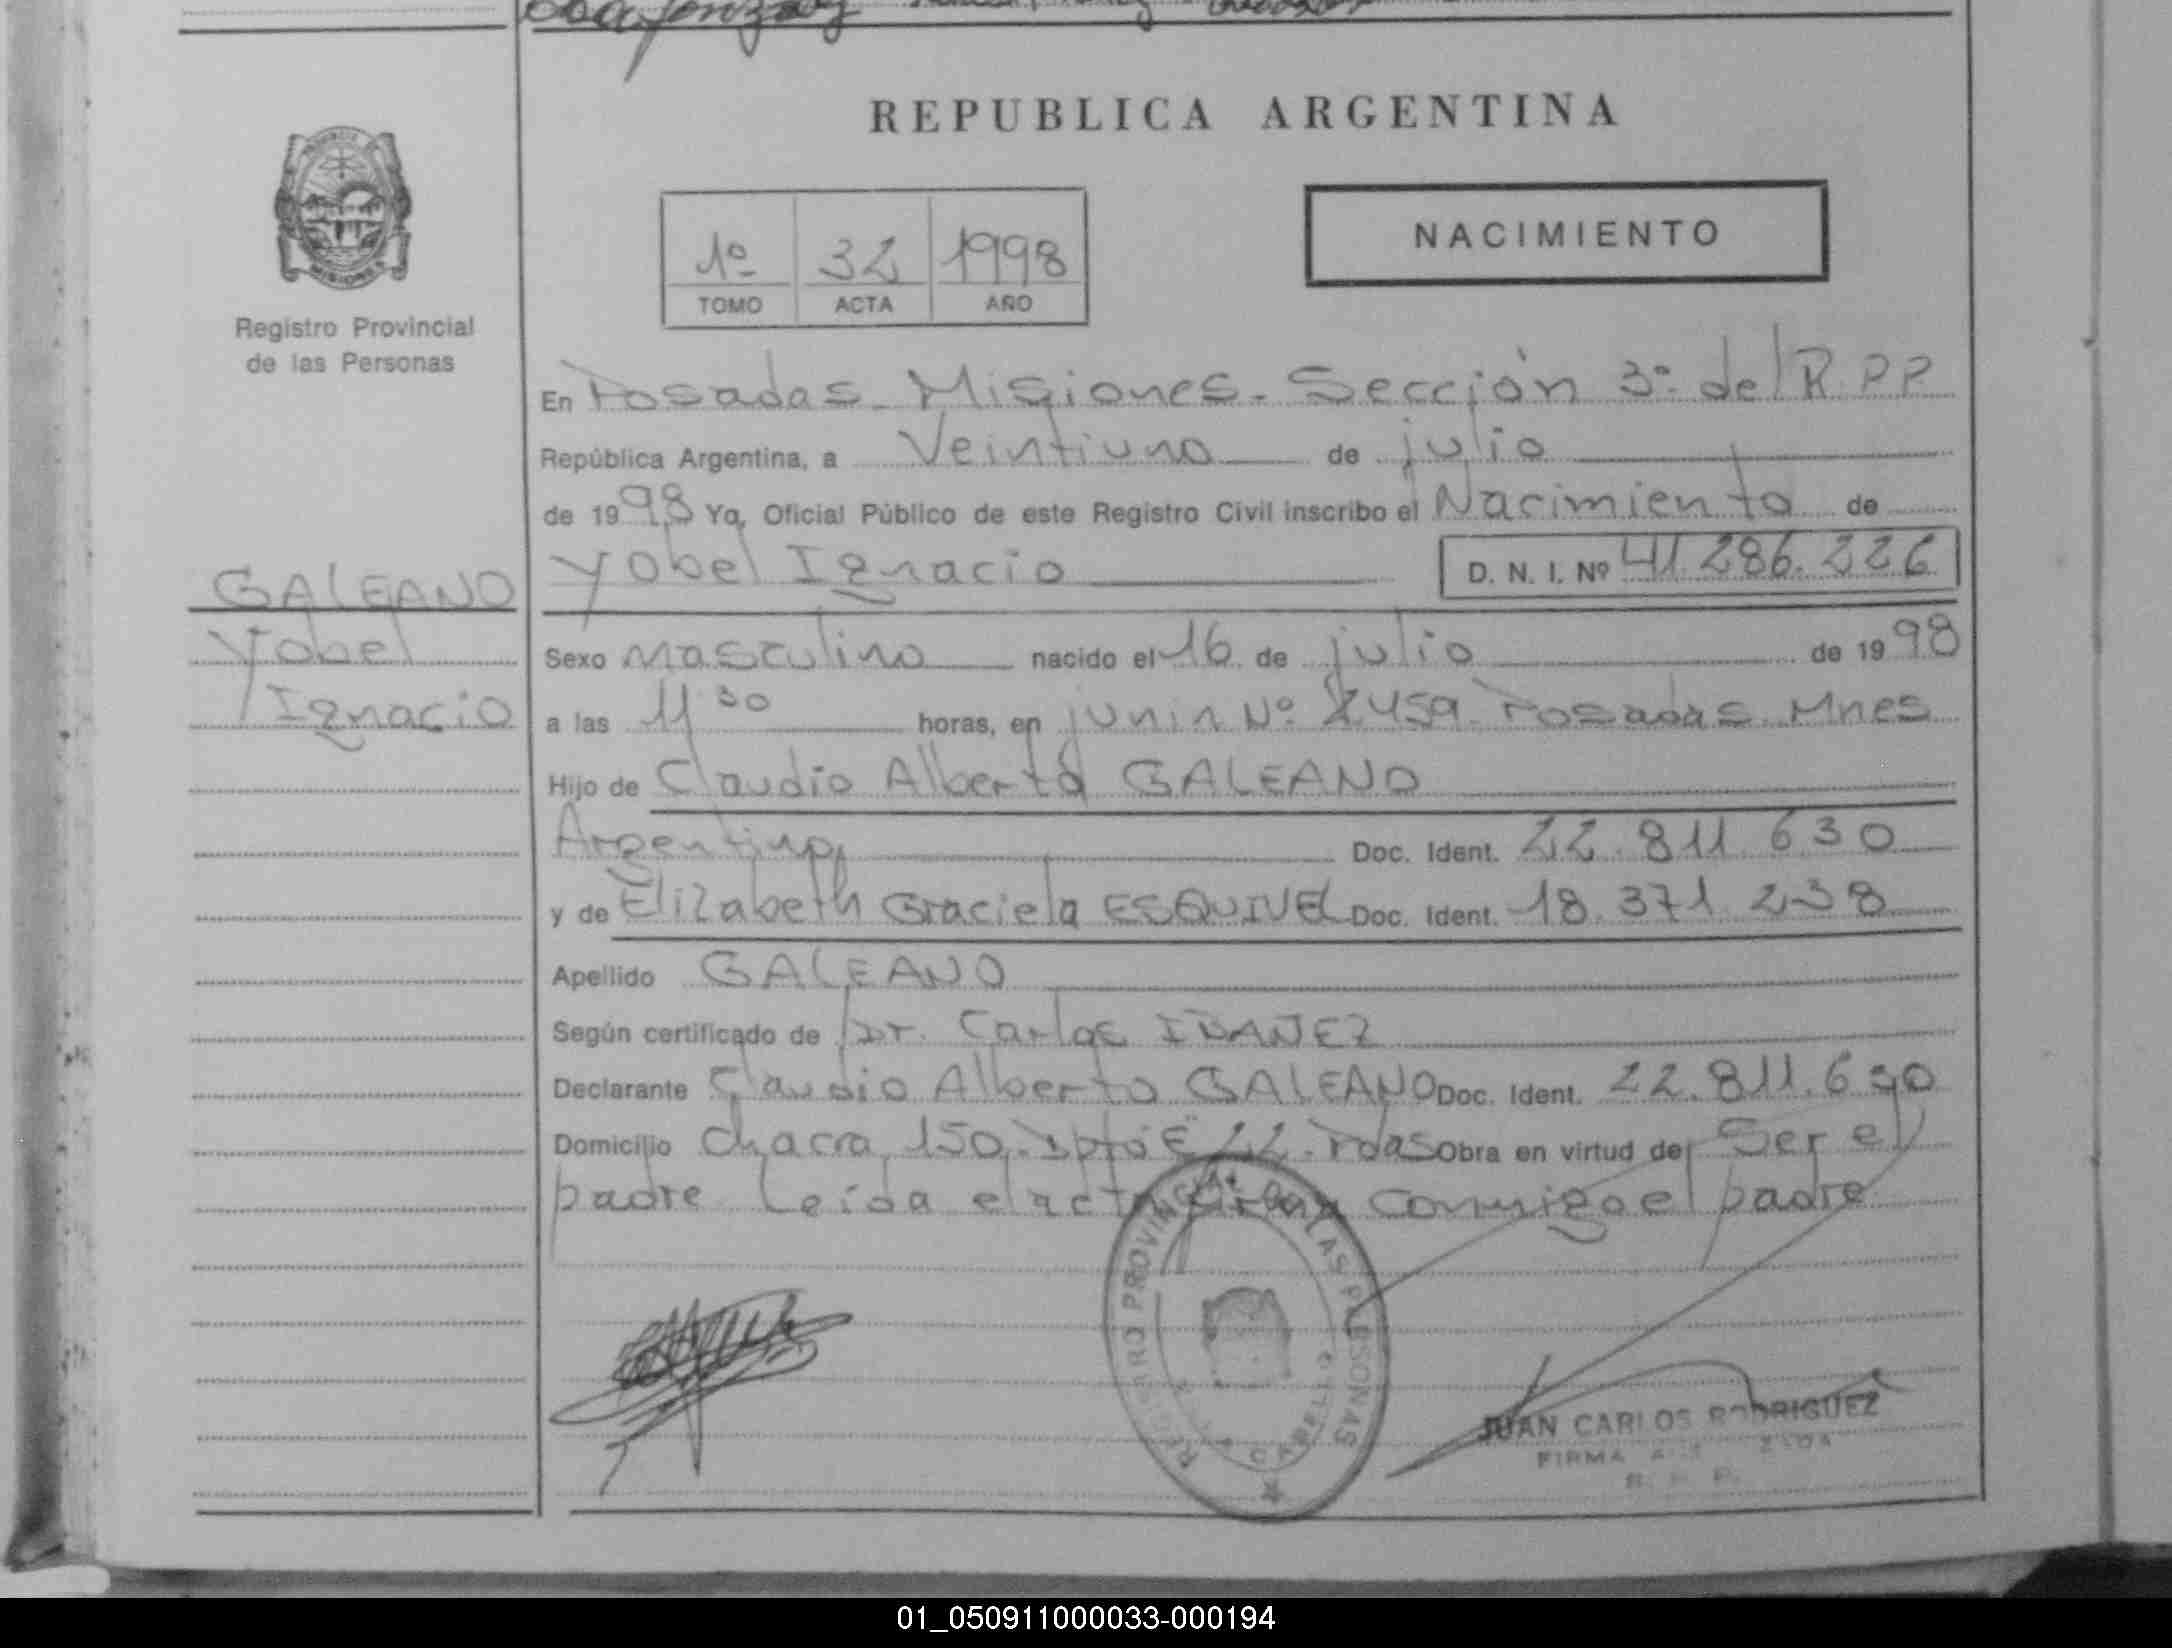 REPUBLICA ARGENTINA
PROVINCIA DE MISIONES
Registro Provincial
de las Personas
1º 32 1998
TOMO ACTA AÑO
NACIMIENTO
En Posadas - Misiones - Sección 3º del R.P.P.
República Argentina, a Veintiuno de julio
de 1998 Yo, Oficial Público de este Registro Civil inscribo el Nacimiento de
GALEANO
Yobel
Ignacio
Yobel Ignacio D. N. I. Nº 41.286.226
Sexo masculino nacido el 16 de julio de 1998
a las 11 30 horas, en junin Nº 2.459. Posadas Mnes
Hijo de Claudio Alberto GALEANO
Argentino Doc. Ident. 22.811.630
y de Elizabeth Graciela ESQUIVEL Doc. Ident. 18.371.238
Apellido GALEANO
Según certificado de Dr. Carlos IBAÑEZ
Declarante Claudio Alberto GALEANO Doc. Ident. 22.811.630
Domicilio Chacra 150. Dpto "E" 22. Pdas Obra en virtud de Ser el
padre Leída el acta firma conmigo el padre
REGISTRO PROVINCIAL DE LAS PERSONAS
JUAN CARLOS RODRIGUEZ
FIRMA
R. P. P.
01_050911000033-000194